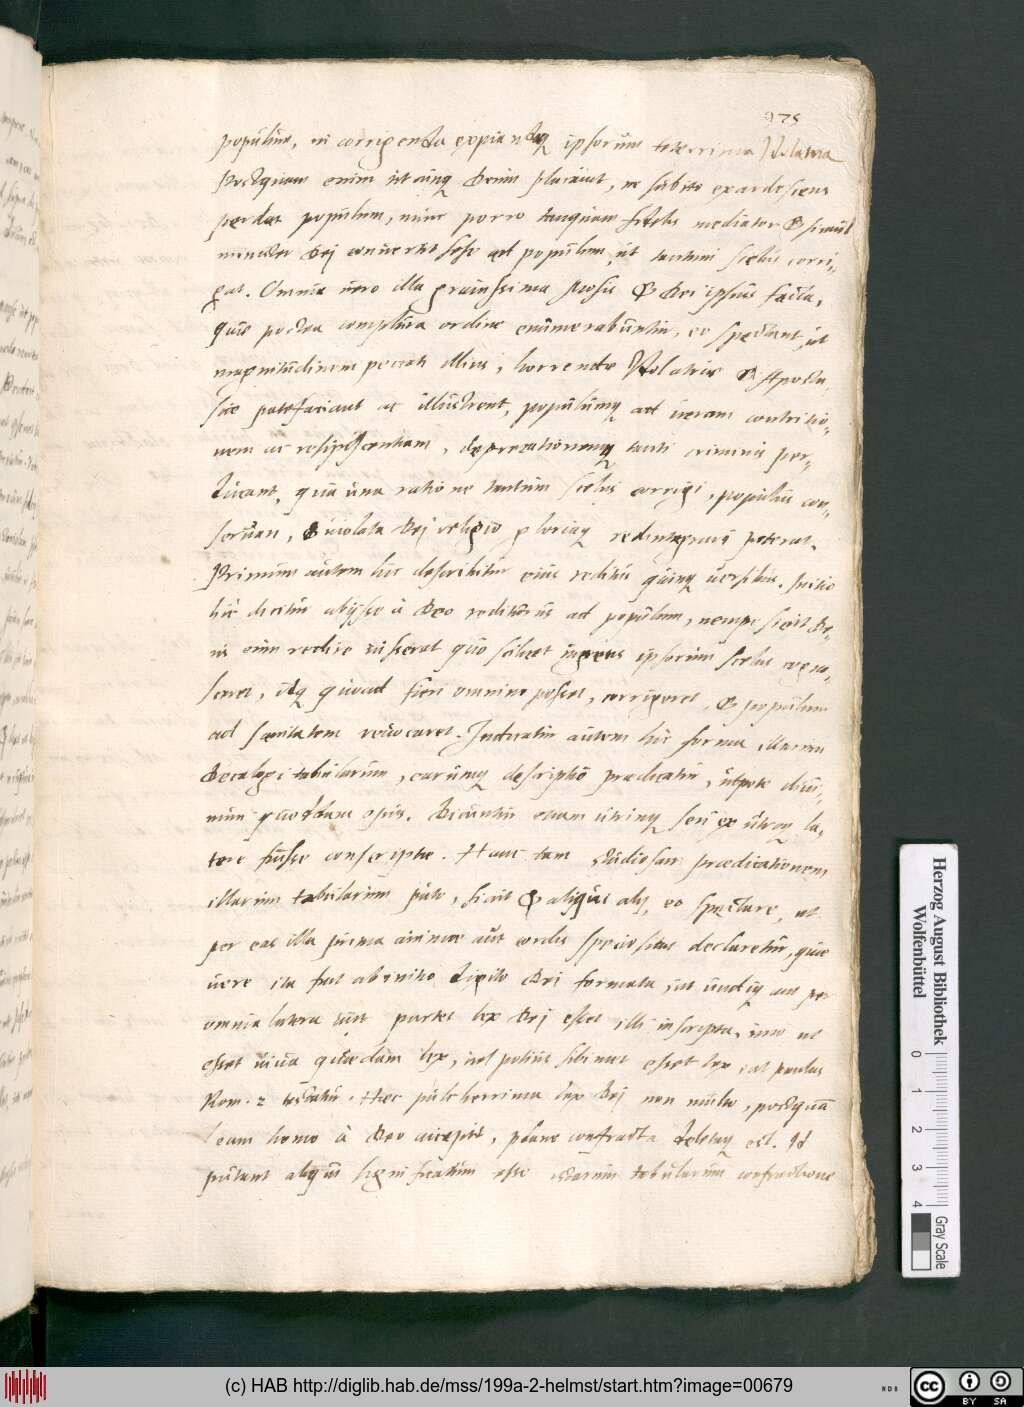 975
populum, in corrigenda expiandaq ipsorum teterrima Idolatria
Postquam enim utcunq Deum placauit, ne subito exardescens
perdat populum, nunc porro tanquam fidelis mediator & simul
minister Dei conuertit sese ad populum, ut tantum scelus corri-
gat. Omnia uero illa grauissima Mosis & Dei ipsius facta,
quae postea complura ordine enumerabuntur, eo spectant, ut
magnitudinem peccati illius, horrendae Idolatriae & Aposta
siae patefaciant ac illustrent, populumq ad ueram contritio-
nem ac resipiscentiam, deprecationemq tanti criminis per-
ducant, qua una ratione tantum scelus corrigi, populus con-
seruari, & uiolata Dei religio gloriaq redintegrari poterat.
Primum autem hic describitur eius reditus quinq uersibus. Initio
hic dicitur abijsse à Deo rediturus ad populum, nempe sicut De-
us eum redire iusserat quo scilicet ingens ipsorum scelus cogno-
sceret, idq quoad fieri omnino posset, corrigeret, & populum
ad sanitatem reuocaret. Indicatur autem hic forma illarum
Decalogi tabularum, earumq descriptio praedicatur, utpote diui-
num quoddam opus. Dicuntur enim utrinq seu ex utroq la-
tere fuisse conscriptae. Hanc tam studiosam praedicationem
illarum tabularum puto, sicut & aliquis alij, eo spectare, ut
per eas illa prima animae aut cordis speciositas declaretur, quae
uere ita fuit ab initio digito Dei formata, ut undiq aut per
omnia latera aut partes lex Dei esset illi inscripta, imo ut
esset uiua quaedam lex, uel potius sibimet esset lex, ut Paulus
Rom. 2 testatur. Haec pulcherrima lex Dei non multo, postquam
eam homo à Deo accepit, plane confracta deletaq est. Id
putant aliqui significatum esse istarum tabularum confractione
Herzog August Bibliothek
Wolfenbüttel
0 1 2 3 4
Gray Scale
(c) HAB http://diglib.hab.de/mss/199a-2-helmst/start.htm?image=00679
cc BY SA